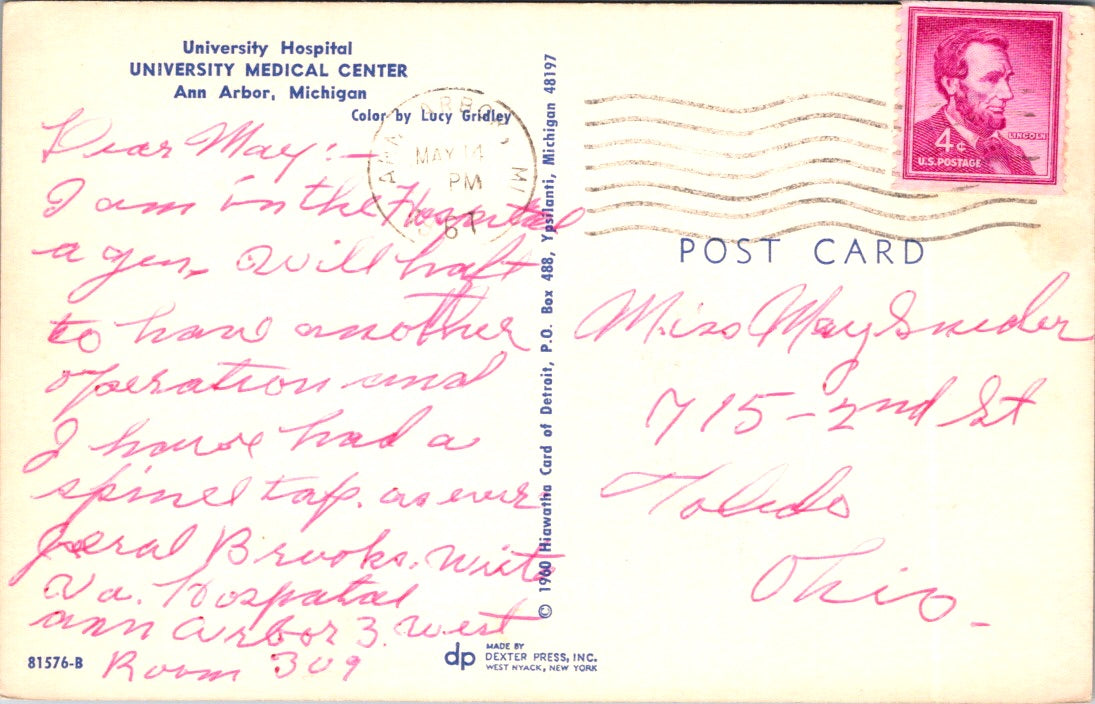 University Hospital
UNIVERSITY MEDICAL CENTER
Ann Arbor, Michigan
Color by Lucy Gridley
Dear May:—
I am in the Hospital
a gen, Will haft
to have another
operation and
I have had a
spinel tap. as ever
Jeral Brooks. write
Va. Hospatal
ann arbor 3. west
Room 309
81576-B
© 1960 Hiawatha Card of Detroit, P.O. Box 488, Ypsilanti, Michigan 48197
dp
MADE BY
DEXTER PRESS, INC.
WEST NYACK, NEW YORK
ANN ARBOR, MI
MAY 14
PM
LINCOLN
4¢
U.S. POSTAGE
POST CARD
Miss May Snider
715-2nd St
Toledo
Ohio.